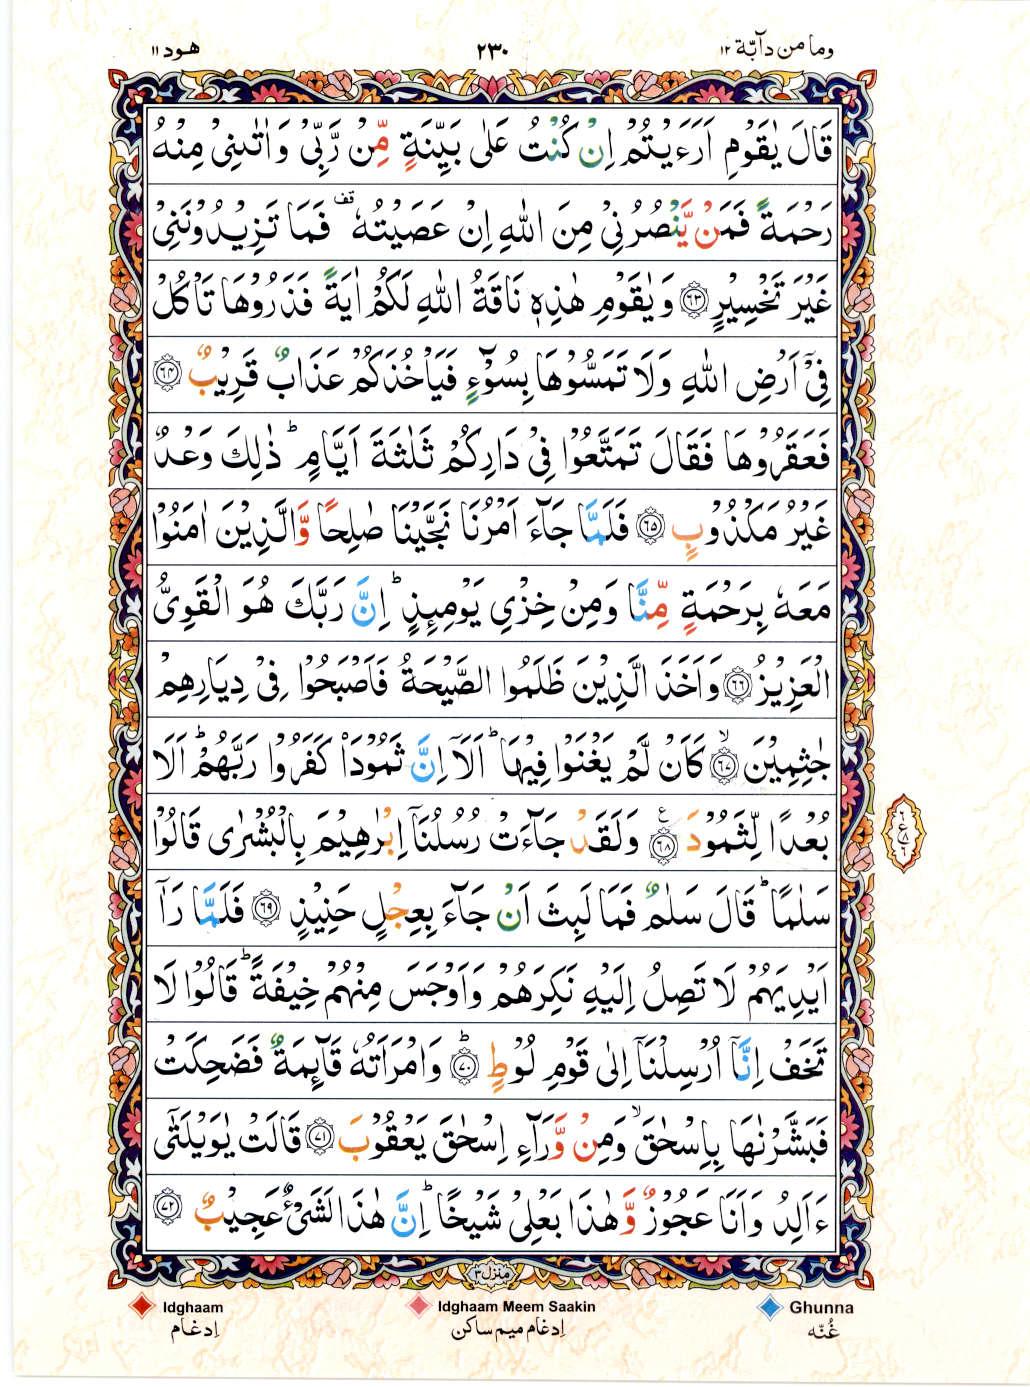 وما من دآبّة ۱۲ ۲۳۰ هود ۱۱
قَالَ يٰقَوْمِ اَرَءَيْتُمْ اِنْ كُنْتُ عَلٰى بَيِّنَةٍ مِّنْ رَّبِّىْ وَاٰتٰىنِىْ مِنْهُ
رَحْمَةً فَمَنْ يَّنْصُرُنِىْ مِنَ اللّٰهِ اِنْ عَصَيْتُهٗ ۚقف فَمَا تَزِيْدُوْنَنِىْ
غَيْرَ تَخْسِيْرٍ ﴿۶۳﴾ وَيٰقَوْمِ هٰذِهٖ نَاقَةُ اللّٰهِ لَكُمْ اٰيَةً فَذَرُوْهَا تَاْكُلْ
فِىْۤ اَرْضِ اللّٰهِ وَلَا تَمَسُّوْهَا بِسُوْٓءٍ فَيَاْخُذَكُمْ عَذَابٌ قَرِيْبٌ ﴿۶۴﴾
فَعَقَرُوْهَا فَقَالَ تَمَتَّعُوْا فِىْ دَارِكُمْ ثَلٰثَةَ اَيَّامٍ ؕ ذٰلِكَ وَعْدٌ
غَيْرُ مَكْذُوْبٍ ﴿۶۵﴾ فَلَمَّا جَآءَ اَمْرُنَا نَجَّيْنَا صٰلِحًا وَّالَّذِيْنَ اٰمَنُوْا
مَعَهٗ بِرَحْمَةٍ مِّنَّا وَمِنْ خِزْىِ يَوْمِئِذٍ ؕ اِنَّ رَبَّكَ هُوَ الْقَوِىُّ
الْعَزِيْزُ ﴿۶۶﴾ وَاَخَذَ الَّذِيْنَ ظَلَمُوا الصَّيْحَةُ فَاَصْبَحُوْا فِىْ دِيَارِهِمْ
جٰثِمِيْنَ ۙ﴿۶۷﴾ كَاَنْ لَّمْ يَغْنَوْا فِيْهَا ؕ اَلَاۤ اِنَّ ثَمُوْدَا۟ كَفَرُوْا رَبَّهُمْ ؕ اَلَا
بُعْدًا لِّثَمُوْدَ ﴿۶۸﴾ ع وَلَقَدْ جَآءَتْ رُسُلُنَاۤ اِبْرٰهِيْمَ بِالْبُشْرٰى قَالُوْا
سَلٰمًا ؕ قَالَ سَلٰمٌ فَمَا لَبِثَ اَنْ جَآءَ بِعِجْلٍ حَنِيْذٍ ﴿۶۹﴾ فَلَمَّا رَاٰۤ
اَيْدِيَهُمْ لَا تَصِلُ اِلَيْهِ نَكِرَهُمْ وَاَوْجَسَ مِنْهُمْ خِيْفَةً ؕ قَالُوْا لَا
تَخَفْ اِنَّاۤ اُرْسِلْنَاۤ اِلٰى قَوْمِ لُوْطٍ ؕ﴿۷۰﴾ وَامْرَاَتُهٗ قَآئِمَةٌ فَضَحِكَتْ
فَبَشَّرْنٰهَا بِاِسْحٰقَ ۙ وَمِنْ وَّرَآءِ اِسْحٰقَ يَعْقُوْبَ ﴿۷۱﴾ قَالَتْ يٰوَيْلَتٰٓى
ءَاَلِدُ وَاَنَا عَجُوْزٌ وَّهٰذَا بَعْلِىْ شَيْخًا ؕ اِنَّ هٰذَا لَشَىْءٌ عَجِيْبٌ ﴿۷۲﴾
منزل ۳
Idghaam Idghaam Meem Saakin Ghunna
اِدغام اِدغام میم ساکن غُنّه